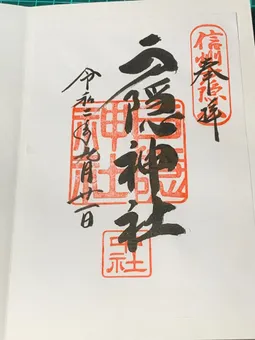 信州戸隠
奉拝
戸隠神社
戸隠
神社
中社
令和二年九月廿一日